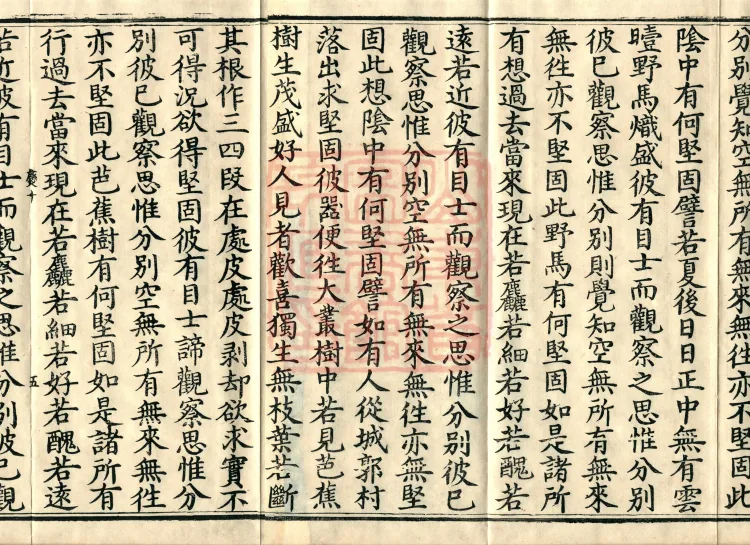 分別覺知空無所有無來無徃亦不堅固此
陰中有何堅固譬若夏後日日正中無有雲
曀野馬熾盛彼有目士而觀察之思惟分別
彼已觀察思惟分別則覺知空無所有無來
無徃亦不堅固此野馬有何堅固如是諸所
有想過去當來現在若麤若細若好若醜若
遠若近彼有目士而觀察之思惟分別彼已
觀察思惟分別空無所有無來無徃亦無堅
固此想陰中有何堅固譬如有人從城郭村
落出求堅固彼器便徃大叢樹中若見芭蕉
樹生茂盛好人見者歡喜獨生無枝葉若斷
其根作三四段在處皮處皮剥却欲求實不
可得況欲得堅固彼有目士諦觀察思惟分
別彼已觀察思惟分別空無所有無來無徃
亦不堅固此芭蕉樹有何堅固如是諸所有
行過去當來現在若麤若細若好若醜若遠
十 五
若近彼有目士而觀察之思惟分別彼已觀